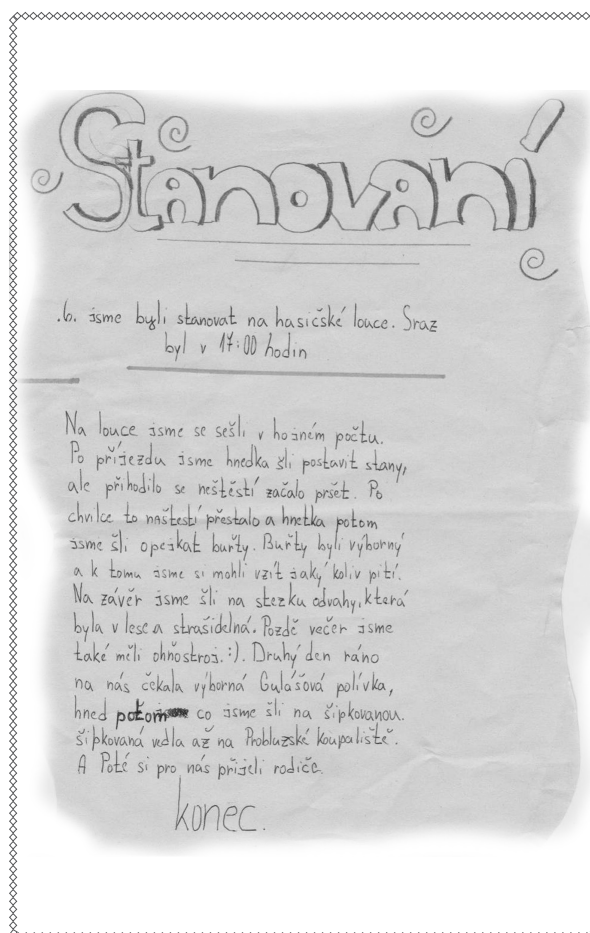 Stanování
.6. jsme byli stanovat na hasičské louce. Sraz
byl v 17:00 hodin
Na louce jsme se sešli v hojném počtu.
Po příjezdu jsme hnedka šli postavit stany,
ale přihodilo se neštěstí začalo pršet. Po
chvilce to naštestí přestalo a hnetka potom
jsme šli opejkat buřty. Buřty byli výborný
a k tomu jsme si mohli vzít jaký koliv pití.
Na závěr jsme šli na stezku odvahy, která
byla v lese a strašidelná. Pozdě večer jsme
také měli ohňostroj. :). Druhý den ráno
na nás čekala výborná Gulášová polívka,
hned potom co jsme šli na šipkovanou.
šipkovaná vedla až na Probluzské koupaliště.
A Poté si pro nás přijeli rodiče.
konec.